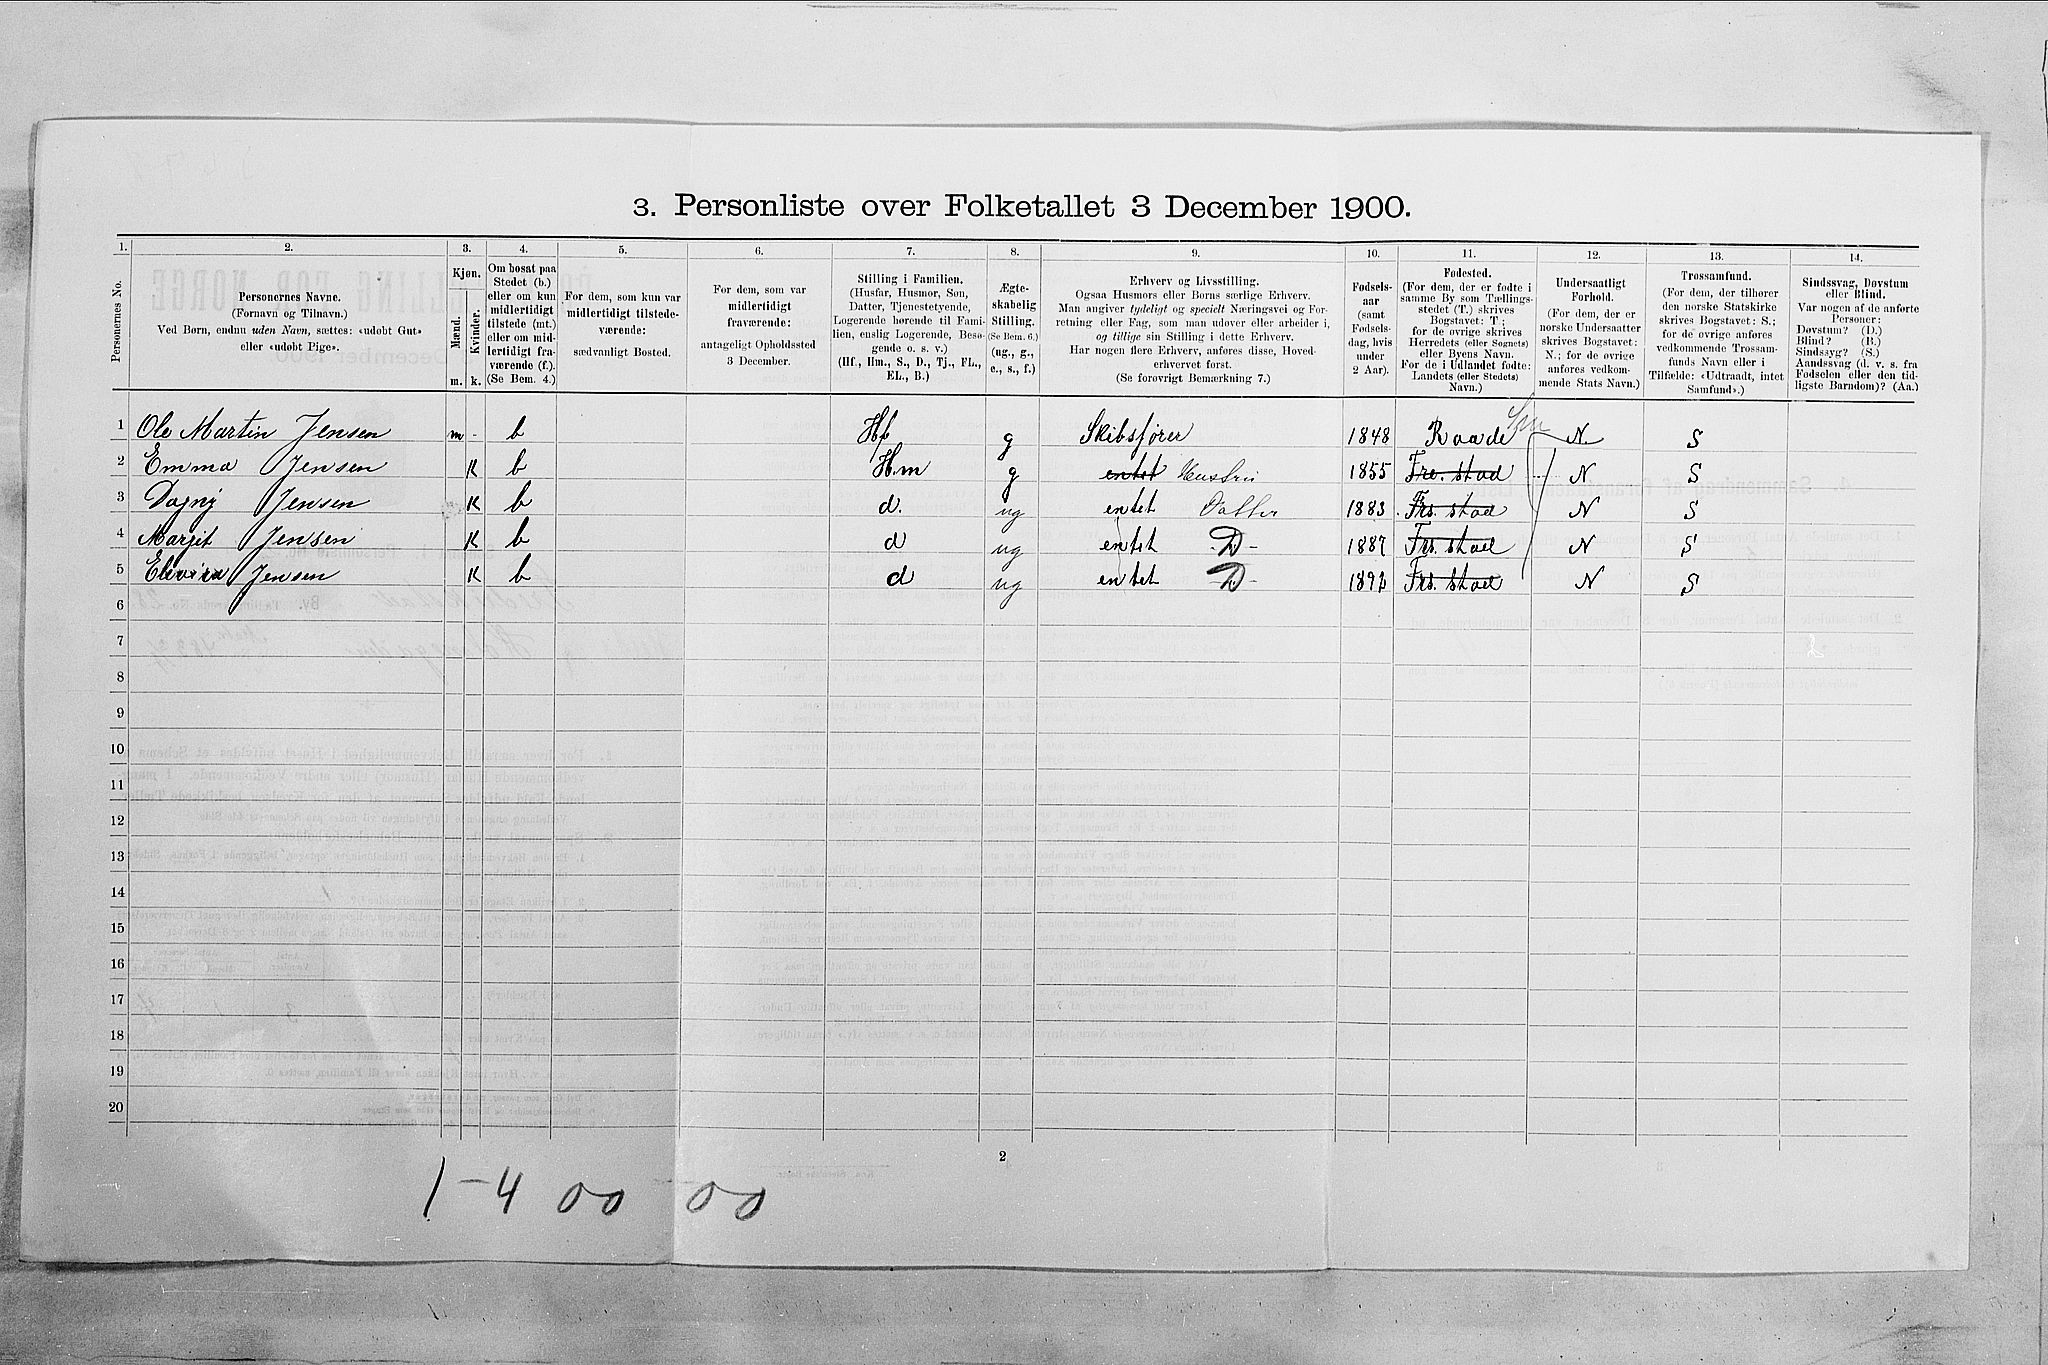 3. Personliste over Folketallet 3 December 1900.
1. 2. 3. 4. 5. 6. 7. 8. 9. 10. 11. 12. 13. 14.
Personernes No.
Personernes Navne.
(Fornavn og Tilnavn.)
Ved Børn, endnu uden Navn, sættes: «udøbt Gut»
eller «udøbt Pige».
Kjøn.
Mænd.
Kvinder.
m. k.
Om bosat paa
Stedet (b.)
eller om kun
midlertidigt
tilstede (mt.)
eller om mid-
lertidigt fra-
værende (f.).
(Se Bem. 4.)
For dem, som kun var
midlertidigt tilstede-
værende:
sædvanligt Bosted.
For dem, som var
midlertidigt
fraværende:
antageligt Opholdssted
3 December.
Stilling i Familien.
(Husfar, Husmor, Søn,
Datter, Tjenestetyende,
Logerende hørende til Fami-
lien, enslig Logerende, Besø-
gende o. s. v.)
(Hf., Hm., S., D., Tj., FL.,
EL., B.)
Ægte-
skabelig
Stilling.
(Se Bem. 6.)
(ug., g.,
e., s., f.)
Erhverv og Livsstilling.
Ogsaa Husmors eller Børns særlige Erhverv.
Man angiver tydeligt og specielt Næringsvei og For-
retning eller Fag, som man udøver eller arbeider i,
og tillige sin Stilling i dette Erhverv.
Har nogen flere Erhverv, anføres disse, Hoved-
erhvervet først.
(Se forøvrigt Bemærkning 7.)
Fødsels-
aar
(samt
Fødsels-
dag, hvis
under
2 Aar).
Fødested.
(For dem, der er fødte i
samme By som Tællings-
stedet (T.) skrives
Bogstavet: T;
for de øvrige skrives
Herredets (eller Sognets)
eller Byens Navn.
For de i Udlandet fødte:
Landets (eller Stedets)
Navn.)
Undersaatligt
Forhold.
(For dem, der er
norske Undersaatter
skrives Bogstavet:
N.; for de øvrige
anføres vedkom-
mende Stats Navn.)
Trossamfund.
(For dem, der tilhører
den norske Statskirke
skrives Bogstavet: S.;
for de øvrige anføres
vedkommende Trossam-
funds Navn eller i
Tilfælde: «Udtraadt, intet
Samfund».)
Sindssvag, Døvstum
eller Blind.
Var nogen af de anførte
Personer:
Døvstum? (D.)
Blind? (B.)
Sindssyg? (S.)
Aandssvag (d. v. s. fra
Fødselen eller den tid-
ligste Barndom)? (Aa.)
1 Ole Martin Jensen m - b Hf g Skibsfører 1848 Raade N S
2 Emma Jensen K b Hm g entet Hustru 1855 Fre. stad N S
3 Dagny Jensen K b d. ug entet Datter 1883 Frs. stad N S
4 Margit Jensen K b d ug entet - D - 1887 Frs. stad N S
5 Elevira Jensen K b d ug entet - D - 1892 Frs. stad N S
6
7
8
9
10
11
12
13
14
15
16
17
18
19
20
2
1 - 4 00 00